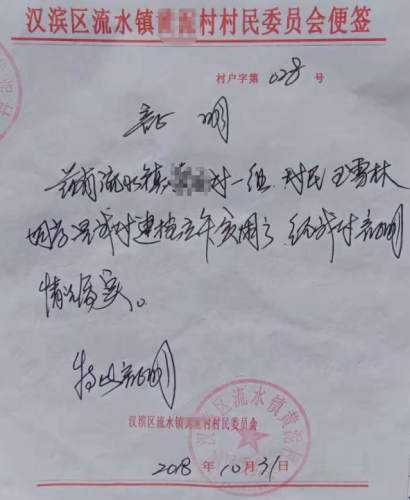 汉滨区流水镇村村民委员会便签
村户字第 028 号
证 明
兹有流水镇村一组 村民王雪林
同志是我村建档立卡贫困户, 经我村证明
情况属实。
特此证明
汉滨区流水镇村村民委员会
2018 年 10 月 31 日